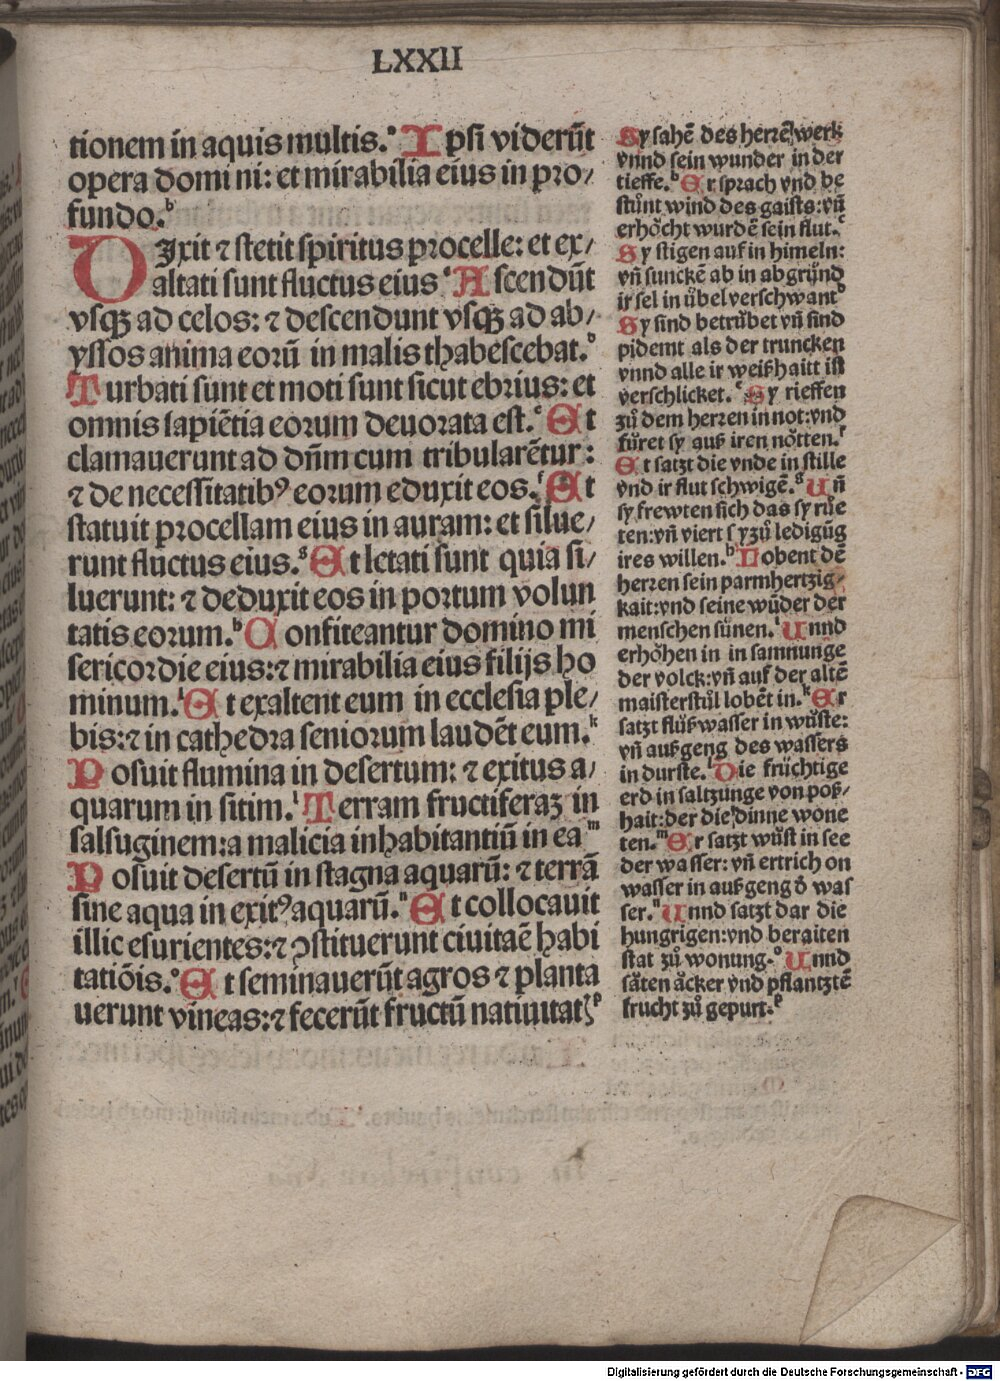 LXXII
tionem in aquis multis.ᵃ Ipsi viderūt
opera domini ni: et mirabilia eius in pro⸗
fundo.ᵇ
Dixit ⁊ stetit spiritus procelle: et ex⸗
altati sunt fluctus eius ᶜ Ascendūt
vsqꝫ ad celos: ⁊ descendunt vsqꝫ ad ab⸗
yssos anima eorū in malis thabescebat.ᵈ
Turbati sunt et moti sunt sicut ebrius: et
omnis sapiētia eorum deuorata est.ᵉ Et
clamauerunt ad dn̄m cum tribularētur:
⁊ de necessitatibꝰ eorum eduxit eos.ᶠ Et
statuit procellam eius in auram: et silue⸗
runt fluctus eius.ᵍ Et letati sunt quia si⸗
luerunt: ⁊ deduxit eos in portum volun
tatis eorum.ʰ Confiteantur domino mi
sericordie eius:⁊ mirabilia eius filijs ho
minum.ⁱ Et exaltent eum in ecclesia ple⸗
bis:⁊ in cathedra seniorum laudēt eum.ᵏ
Posuit flumina in desertum: ⁊ exitus a⸗
quarum in sitim.ˡ Terram fructiferaꝫ in
salsuginem:a malicia inhabitantiū in ea ᵐ
Posuit desertū in stagna aquarū: ⁊ terrā
sine aqua in exitꝰ aquarū.ⁿ Et collocauit
illic esurientes:⁊ ꝯstituerunt ciuitaē habi
tatiōis.ᵒ Et seminauerūt agros ⁊ planta
uerunt vineas:⁊ fecerūt fructū natiuitatꝭᵖ
Sy sahē des herrē werk
vnnd sein wunder in der
tieffe.ᵇ Er sprach vnd be
stůnt wind des gaists:vn̄
erhöcht wurdē sein flut.ᶜ
Sy stigen auf in himeln:
vn̄ sunckē ab in abgrůnd
ir sel in übel verschwantᵈ
Sy sind betrůbet vn̄ sind
pidemt als der truncken
vnnd alle ir weißhaitt ist
verschlicket.ᵉ Sy rieffen
zů dem herren in not:vnd
fůret sy auß iren nötten.ᶠ
Et satzt die vnde in stille
vnd ir flut schwigē.ᵍ Un̄
sy frewten sich das sy růe
ten:vn̄ viert sy zů ledigūg
ires willen.ʰ Lobent dē
herren sein parmhertzig⸗
kait:vnd seine wūder der
menschen sünen.ⁱ Unnd
erhöhen in in samnunge
der volck:vn̄ auf der altē
maisterstůl lobēt in.ᵏ Er
satzt flůßwasser in wůste:
vn̄ außgeng des wassers
in durste.ˡ Die früchtige
erd in saltzunge von poß⸗
hait:der die dinne wone
ten.ᵐ Er satzt wůst in see
der wasser: vn̄ ertrich on
wasser in außgeng d̄ was
ser.ⁿ Unnd satzt dar die
hungrigen:vnd beraiten
stat zů wonung.ᵒ Unnd
säten äcker vnd pflantztē
frucht zů gepurt.ᵖ
Digitalisierung gefördert durch die Deutsche Forschungsgemeinschaft - DFG